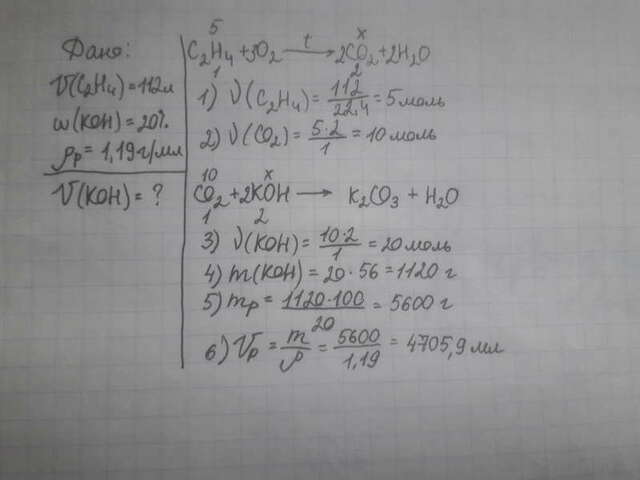 Дано:
V(C₂H₄)=112л
w(KOH)=20%
ρр=1,19г/мл
V(KOH)=?
5 x
C₂H₄+3O₂ —t→ 2CO₂+2H₂O
1 2
1) ν(C₂H₄)=112/22,4=5моль
2) ν(CO₂)=5·2/1=10моль
10 x
CO₂+2KOH → K₂CO₃+H₂O
1 2
3) ν(KOH)=10·2/1=20моль
4) m(KOH)=20·56=1120г
5) mр=1120·100/20=5600г
6) Vр=m/ρ=5600/1,19=4705,9мл